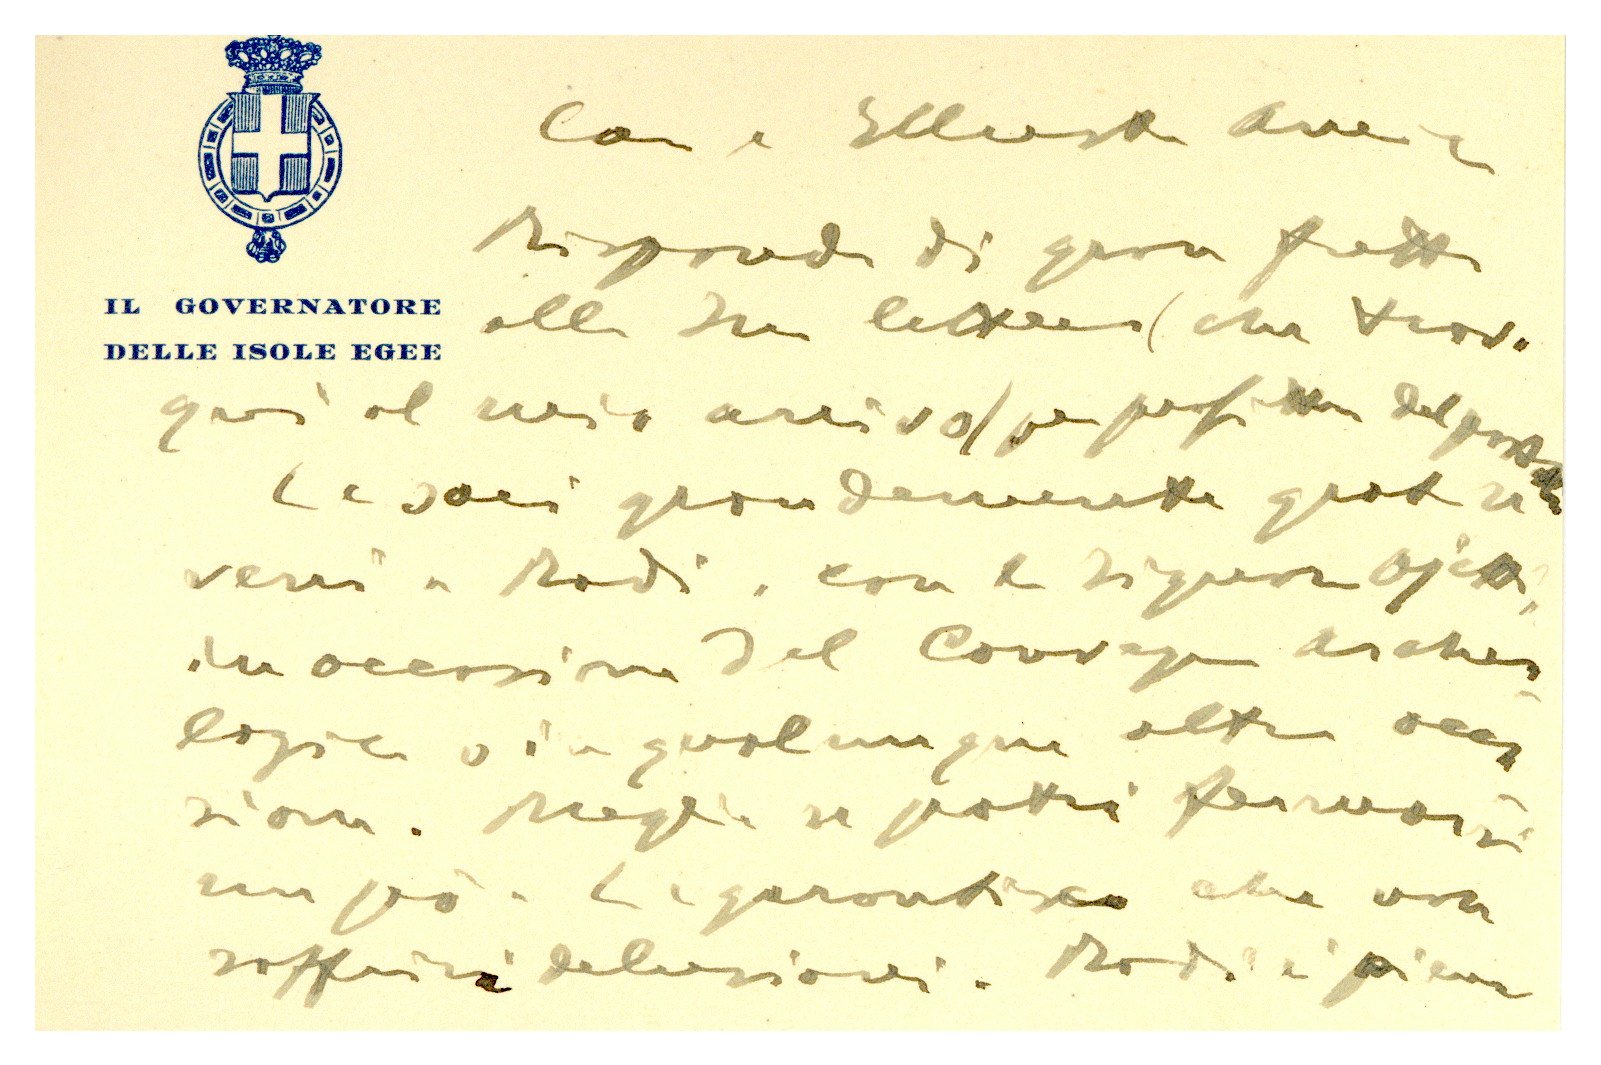 IL GOVERNATORE
DELLE ISOLE EGEE
Caro e Illustre Amico
Rispondo di gran fretta
alla Sua lettera (che trovo
qui al mio arrivo) per profittare del
Le sarei grandemente grato se
venisse a Rodi, con la Signora Ojetti,
in occasione del Convegno Archeo
logico o in qualunque altra occa
sione. Meglio se potrà fermarsi
un pò. Le garantisco che non
soffrirà delusioni. Rodi è piena